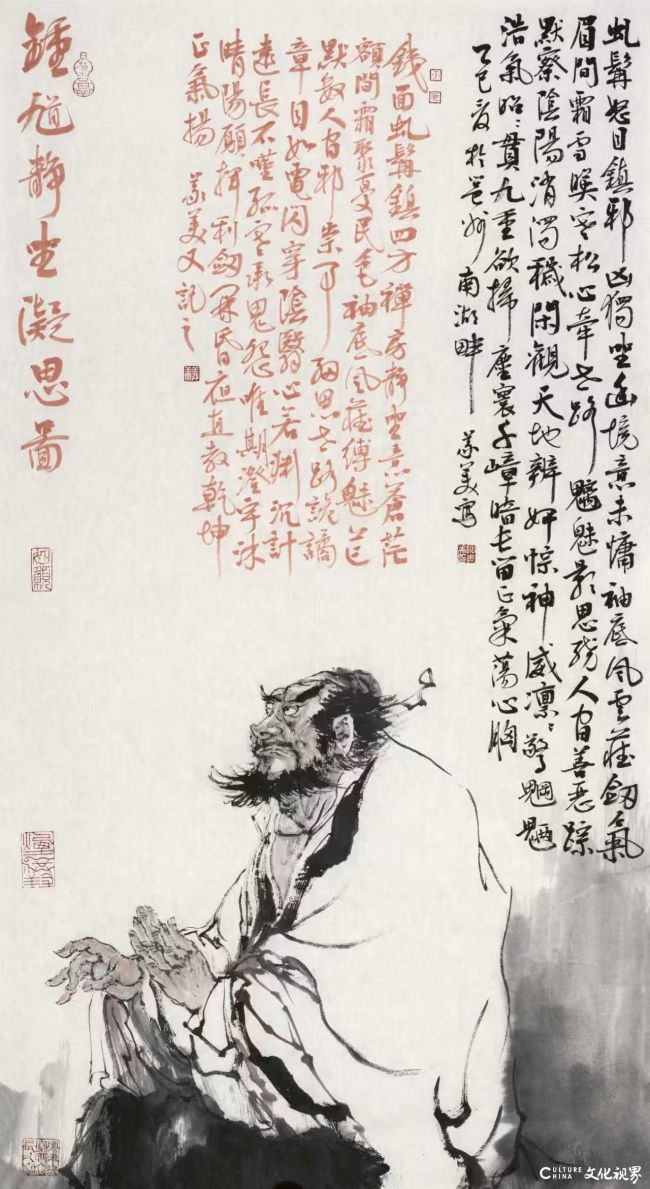 虬髯怒目鎮邪凶獨坐幽境意未慵袖底風雲藏劍氣
眉間霜雪映寒松心牽世路魑魅影思繞人間善惡踪
默察陰陽消濁穢閑觀天地辨奸悰神威凛〻驚魍魎
浩氣昭〻貫九重欲掃塵寰千嶂暗長留正氣蕩心胸
乙巳夏於邕州南湖畔 美寫
鐵面虬髯鎮四方禪房静坐意蒼茫
額間霜聚憂民色袖底風藏縛魅芒
默數人間邪祟事細思世路詭譎
章目如電閃穿陰翳心若淵沉計
遠長不嘆孤寒承鬼怨唯期澄宇沐
晴陽願揮利劍開昏夜直教乾坤
正氣揚 美又記之
鍾馗静坐凝思圖
CULTURE CHINA 文化视界